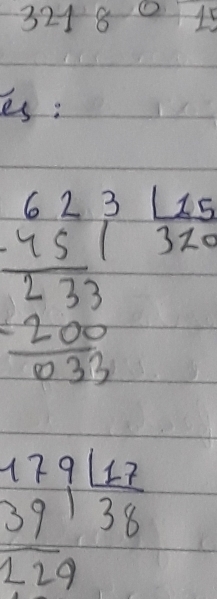 3218 0 15
es:
623 15
-45 320
233
-200
033
179 17
39 38
129